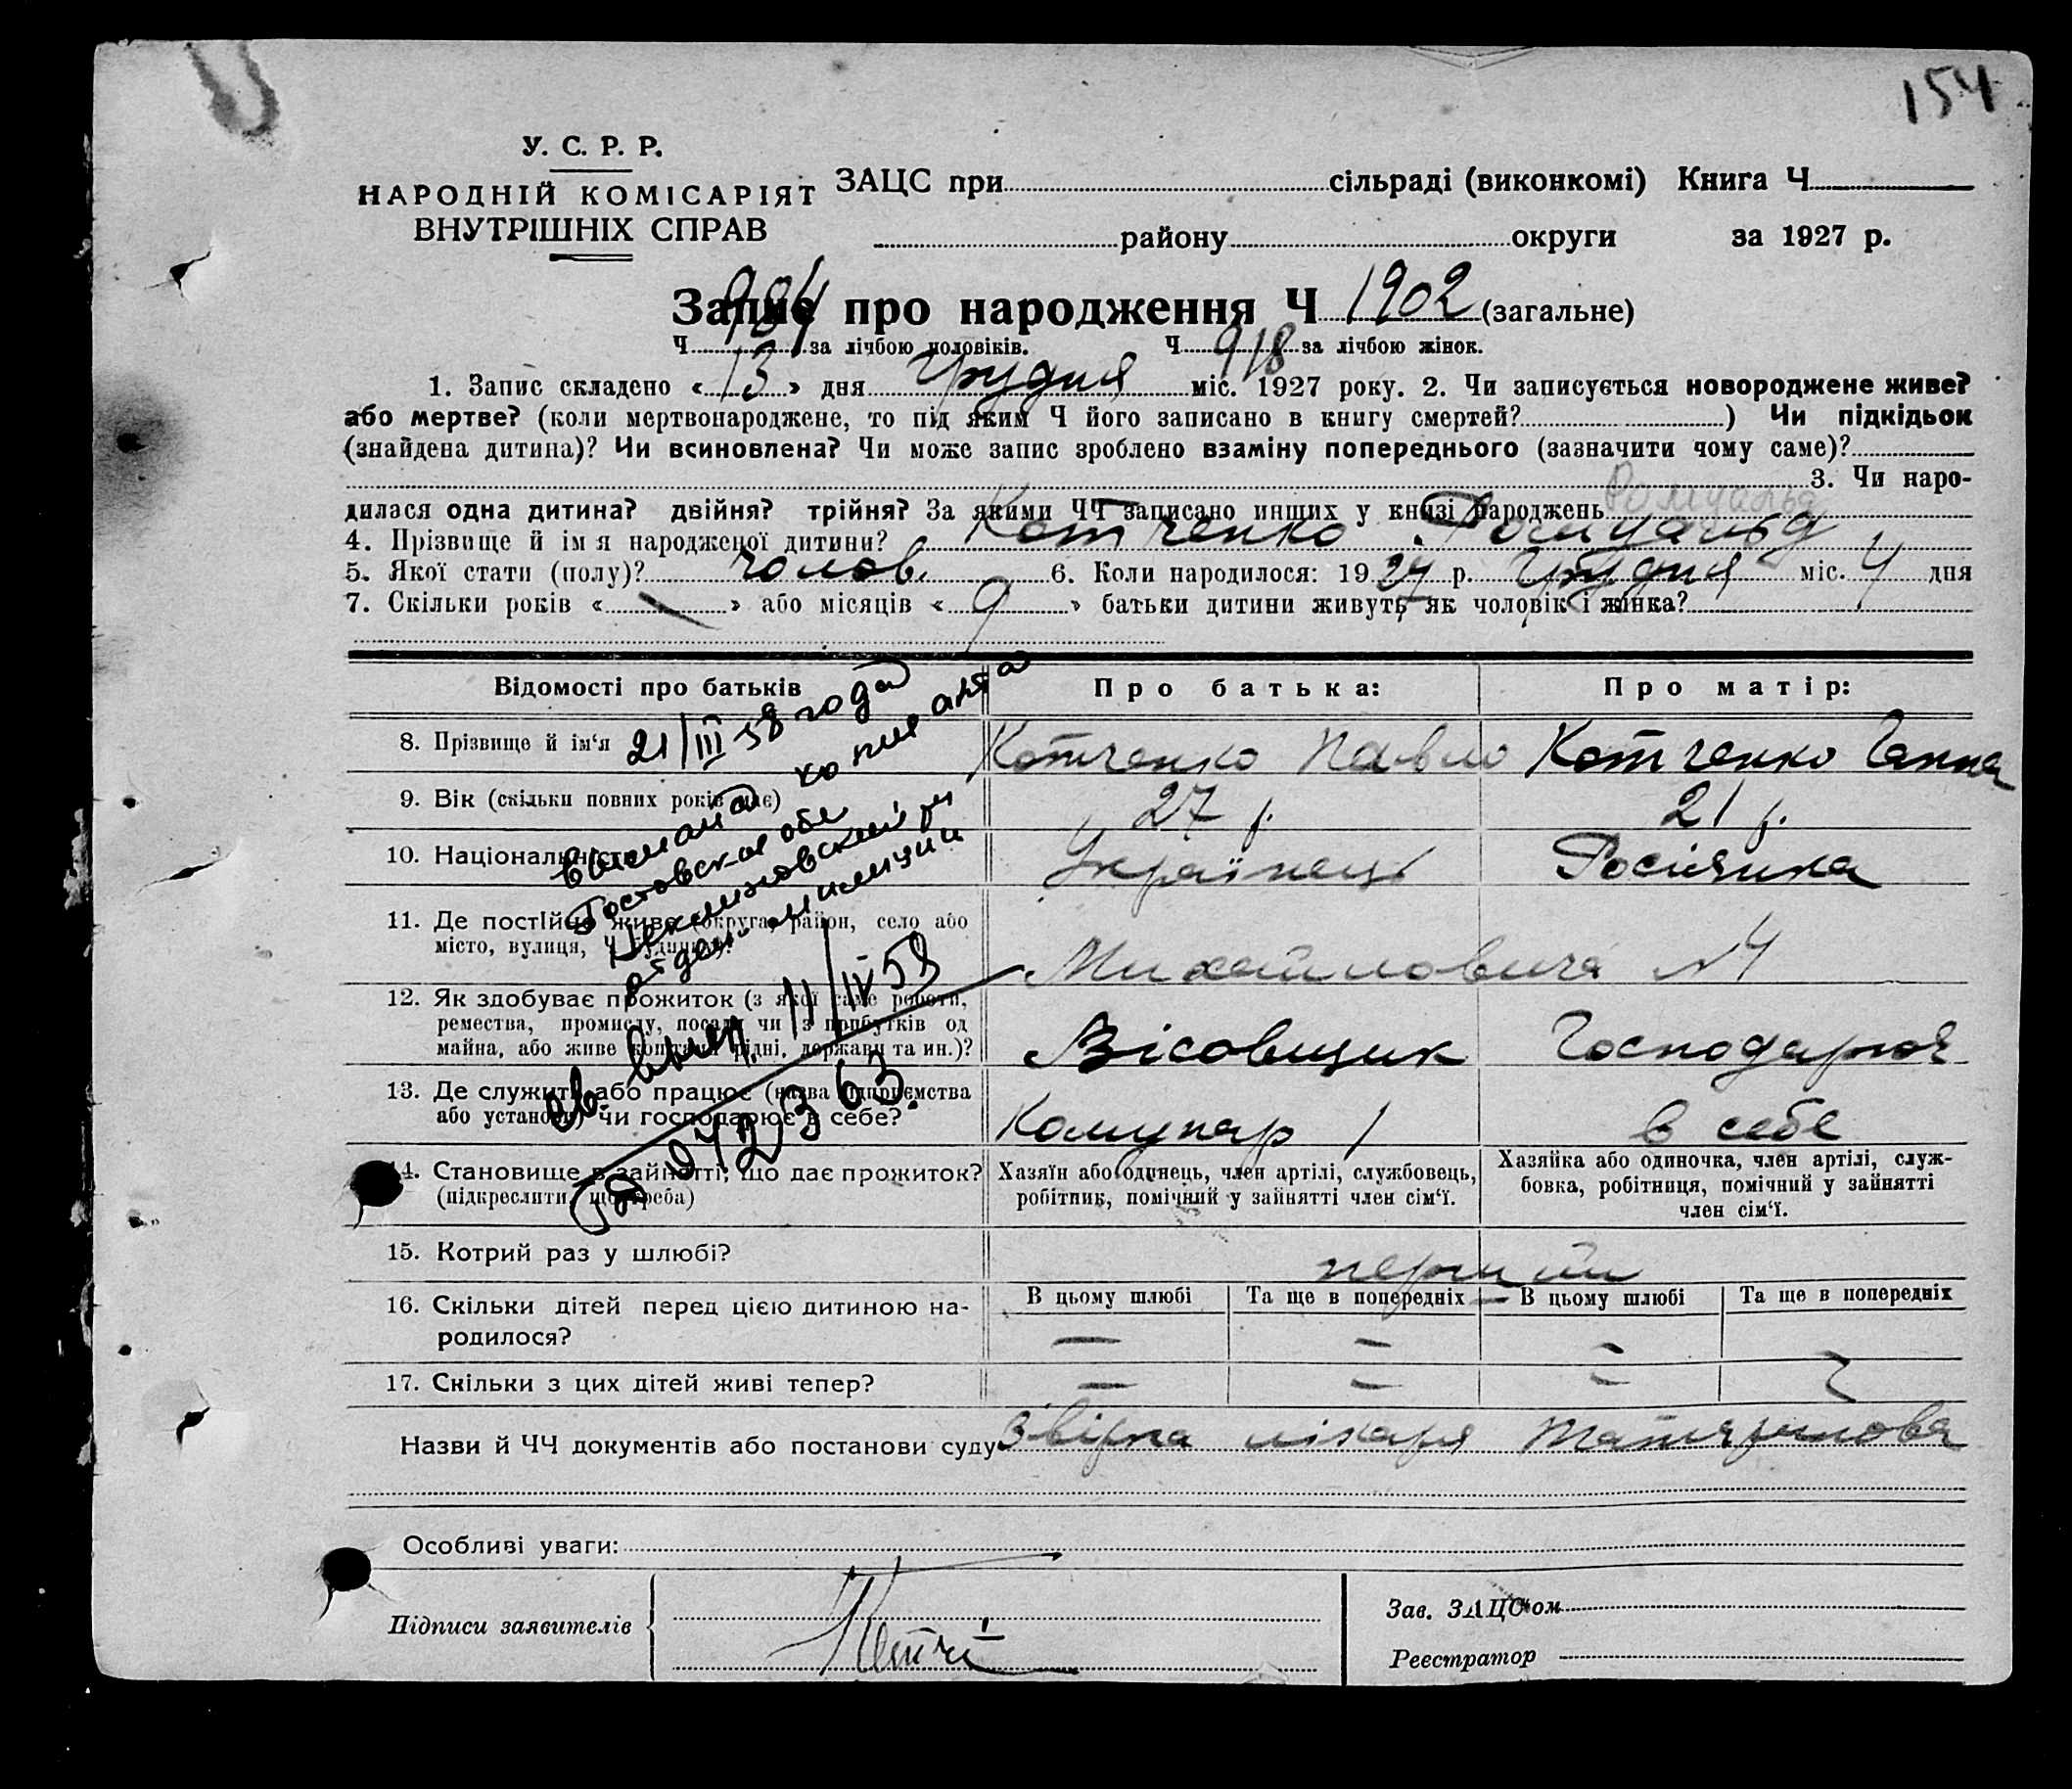 154
У. С. Р. Р.
НАРОДНІЙ КОМІСАРІЯТ
ВНУТРІШНІХ СПРАВ
ЗАЦС при сільраді (виконкомі) Книга Ч
району округи за 1927 р.
Запис про народження Ч 1902 (загальне)
Ч 984 за лічбою чоловіків. Ч 918 за лічбою жінок.
1. Запис складено « 13 » дня Грудня міс. 1927 року. 2. Чи записується новороджене живе?
або мертве? (коли мертвонароджене, то під яким Ч його записано в книгу смертей? ) Чи підкідьок
(знайдена дитина)? Чи всиновлена? Чи може запис зроблено взаміну попереднього (зазначити чому саме)?
3. Чи наро-
дилася одна дитина? двійня? трійня? За якими ЧЧ записано инших у книзі народжень
Ромуальд
4. Прізвище й ім я народженої дитини? Котченко Ромуальд
5. Якої стати (полу)? чолов. 6. Коли народилося: 19 27 р. Грудня міс. 4 дня
7. Скільки років « » або місяців « 9 » батьки дитини живуть як чоловік і жінка?
Відомості про батьків Про батька: Про матір:
8. Прізвище й ім‘я Котченко Павло Котченко Ганна
9. Вік (скільки повних років має) 27 р. 21 р.
10. Національність Українець Росіянка
11. Де постійно живе (округа, район, село або
місто, вулиця, Ч будинку)?
Михайловича №4
12. Як здобуває прожиток (з якої саме роботи,
ремества, промислу, посади чи з прибутків од
майна, або живе коштами рідні, держави та ин.)?
Вісовщик Господарює
13. Де служить або працює (назва підприємства
або установи) чи господарює в себе?
Комунар 1 в себе
14. Становище в зайнятті, що дає прожиток?
(підкреслити, що треба)
Хазяїн або одинець, член артілі, службовець,
робітник, помічний у зайнятті член сім‘ї.
Хазяйка або одиночка, член артілі, служ-
бовка, робітниця, помічний у зайнятті
член сім‘ї.
15. Котрий раз у шлюбі? перший
16. Скільки дітей перед цією дитиною на-
родилося?
В цьому шлюбі Та ще в попередніх В цьому шлюбі Та ще в попередніх
— — — —
17. Скільки з цих дітей живі тепер?
— — —
Назви й ЧЧ документів або постанови суду Звірка лікаря
Особливі уваги:
Підписи заявителів
Зав. ЗАЦС‘ом
Реєстратор
21/III 58 года
выслана копия акта
Ростовская обл
отдел милиции
св. выд. 11/IV 58